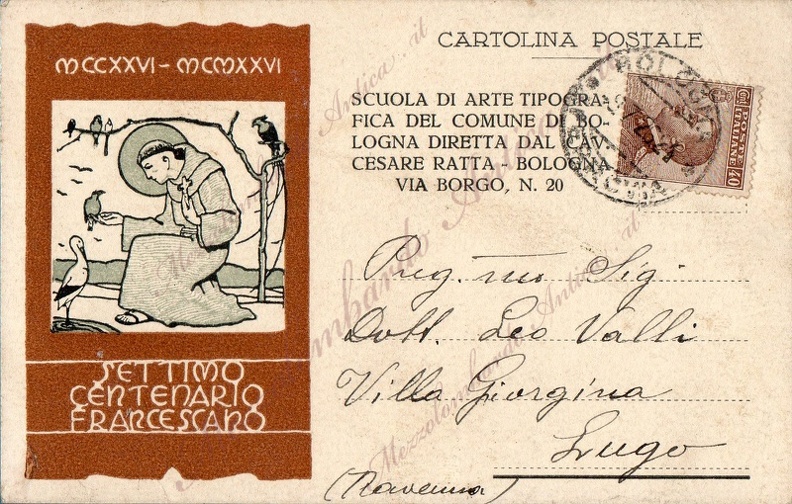 MCCXXVI – MCMXXVI
SETTIMO
CENTENARIO
FRANCESCANO
CARTOLINA POSTALE
SCUOLA DI ARTE TIPOGRA-
FICA DEL COMUNE DI BO-
LOGNA DIRETTA DAL CAV.
CESARE RATTA - BOLOGNA
VIA BORGO, N. 20
BOLOGNA
POSTE ITALIANE
CENT. 40
Preg.mo Sig
Dott. Leo Valli
Villa Giorgina
Lugo
(Ravenna)
Mezzolombardo Antica . it